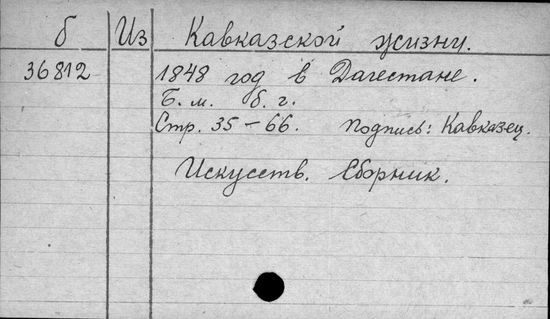 б Из Кавказской жизни.
36812 1848 год в Дагестане.
Б. м. б. г.
Стр. 35-66. Подпись: Кавказец.
Искусств. Сборник.